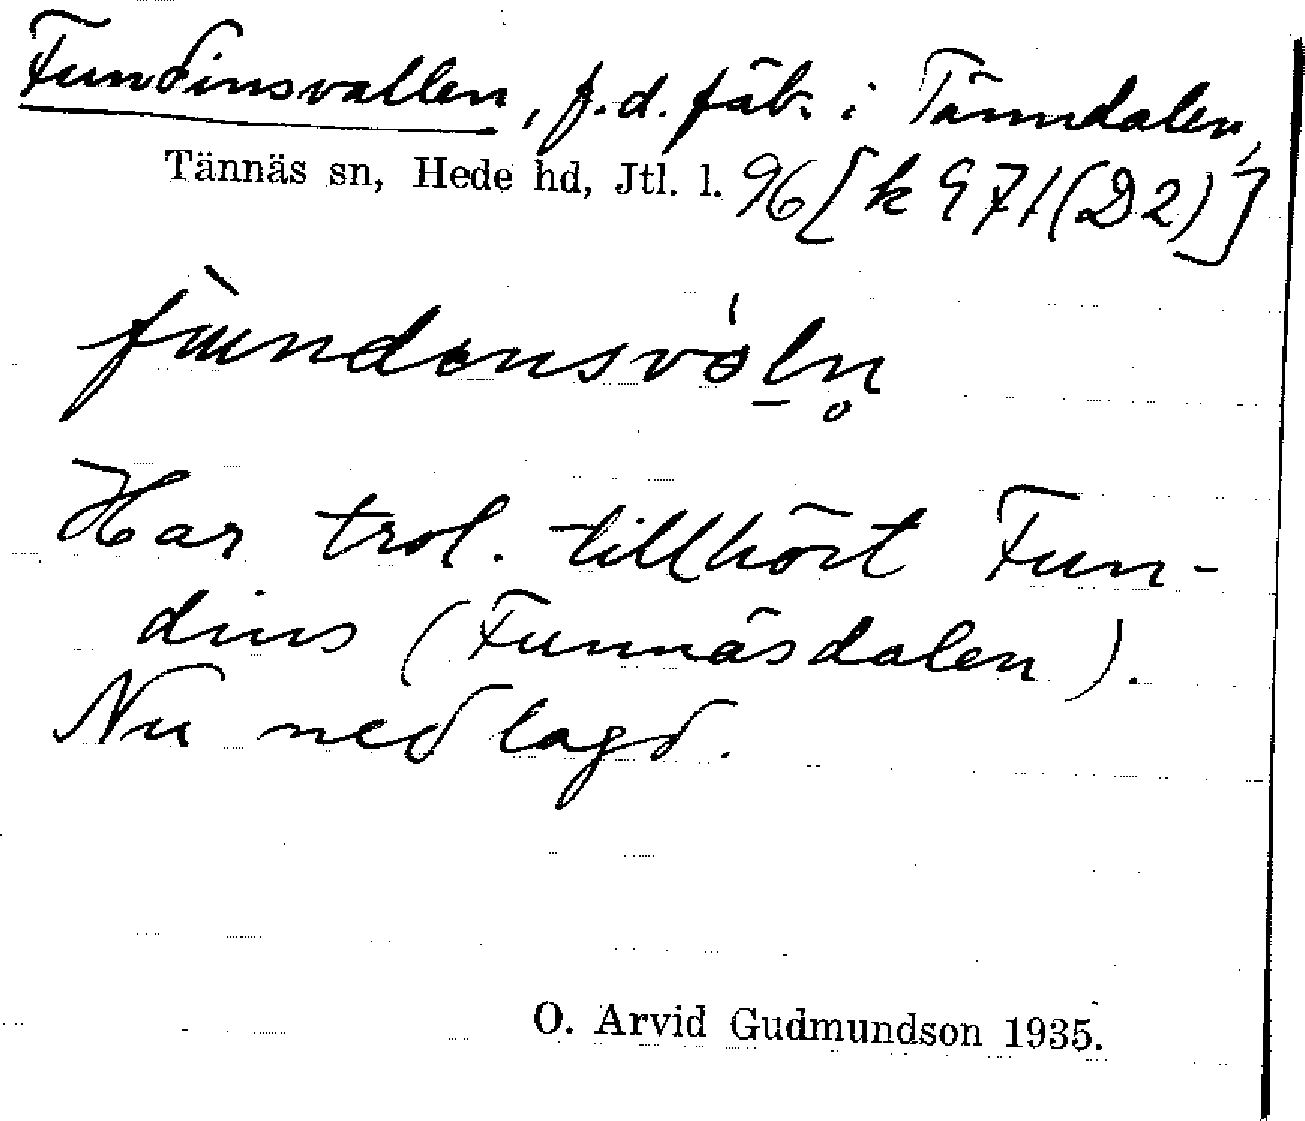 Fundinsvallen, f.d. fäb. i Tänndalen,
Tännäs sn, Hede hd, Jtl. l. 96 [k 971 (D2)]
Har trol. tillhört Fun-
dins (Funnäsdalen).
Nu nedlagd.
O. Arvid Gudmundson 1935.